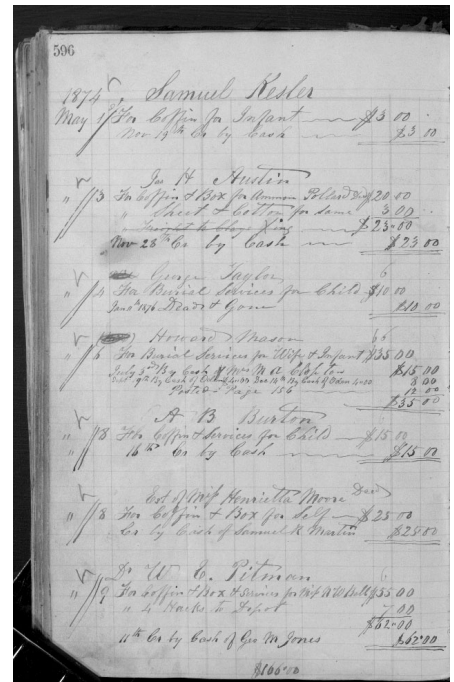 596
1874 Samuel Kesler
May 1st For Coffin for Infant $3 00
Nov 19th Cr by Cash $3 00
Jas H Austin
" 3 For Coffin & Box for Ammon Pollard Decd $20 00
" Sheet & Cotton for same 3 00
$23 00
Nov 28th Cr by Cash $23 00
George Taylor 6
" 4 For Burial Services for Child $10 00
1876 Dead & Gone $10 00
Howard Mason 66
" 6 For Burial Services for Wife & Infant $35 00
July 3rd By Cash of Mrs M A $15 00
Sept 9th By Cash of 4.00 Dec 14th By Cash of 4.00 8 00
Posted Page 156 12 00
$35 00
A B Burton
" 8 For Coffin & Services for Child $15 00
16th Cr by Cash $15 00
Est of Miss Henrietta Moore Decd
" 8 For Coffin & Box for Self $25 00
Cr by Cash of Samuel R Martin $25 00
Dr W C Pitman 6
" 9 For Coffin & Box & Services for W W Bell $55 00
" 4 Hacks to Depot 7 00
$62 00
11th Cr by Cash of Geo M Jones $62 00
$166 00